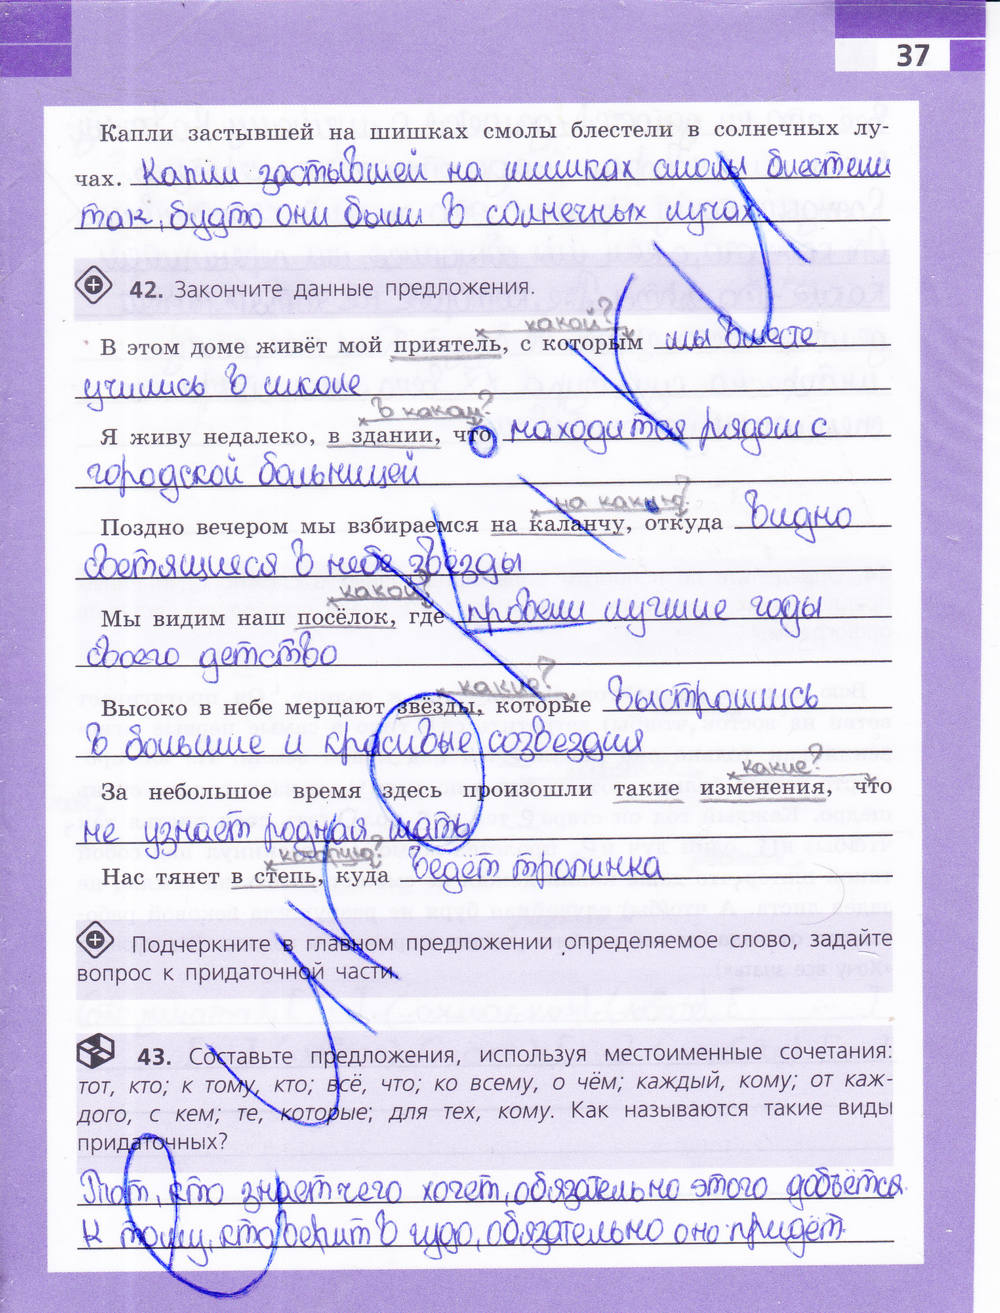 37
Капли застывшей на шишках смолы блестели в солнечных лу-
чах. Капли застывшей на шишках смолы блестели
так, будто они были в солнечных лучах.
42. Закончите данные предложения.
какой?
В этом доме живёт мой приятель, с которым мы вместе
учились в школе
в каком?
Я живу недалеко, в здании, что находится рядом с
городской больницей
на какую?
Поздно вечером мы взбираемся на каланчу, откуда видно
светящиеся в небе звёзды
какой?
Мы видим наш посёлок, где провели лучшие годы
своего детство
какие?
Высоко в небе мерцают звёзды, которые выстроились
в большие и красивые созвездия
какие?
За небольшое время здесь произошли такие изменения, что
не узнает родная мать
которую?
Нас тянет в степь, куда ведёт тропинка
Подчеркните в главном предложении определяемое слово, задайте
вопрос к придаточной части.
43. Составьте предложения, используя местоименные сочетания:
тот, кто; к тому, кто; всё, что; ко всему, о чём; каждый, кому; от каж-
дого, с кем; те, которые; для тех, кому. Как называются такие виды
придаточных?
Тот, кто знает чего хочет, обязательно этого добьётся.
К тому, кто верит в чудо, обязательно оно придёт.